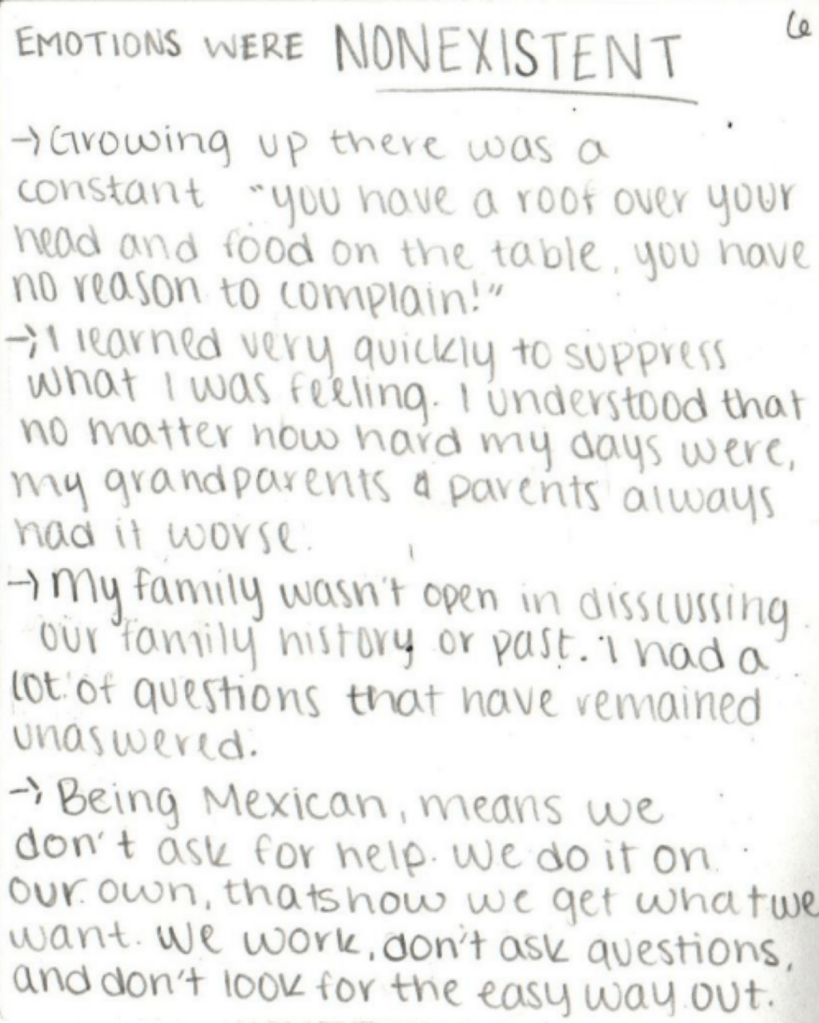 6
EMOTIONS WERE NONEXISTENT
→ Growing up there was a
constant "you have a roof over your
head and food on the table, you have
no reason to complain!"
→ I learned very quickly to suppress
what I was feeling. I understood that
no matter how hard my days were,
my grandparents & parents always
had it worse.
→ My family wasn't open in disscussing
our family history or past. I had a
lot of questions that have remained
unaswered.
→ Being Mexican, means we
don't ask for help. We do it on
our own, thats how we get what we
want. We work, don't ask questions,
and don't look for the easy way out.